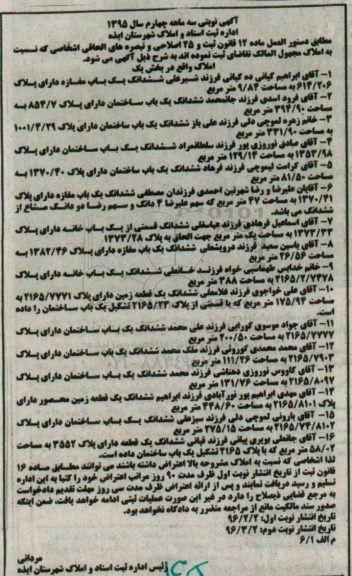 آگهی نوبتی سه ماهه چهارم سال ۱۳۹۵
اداره ثبت اسناد و املاک شهرستان ایذه
مطابق دستور العمل ماده ۱۲ قانون ثبت و ۲۵ اصلاحی و تبصره های الحاقی اشخاصی که نسبت
به املاک مجهول المالک تقاضای ثبت نموده اند به شرح ذیل آگهی می شود.
املاک واقع در بخش یک
۱- آقای ابراهیم کیانی ده کیانی فرزند شیرعلی ششدانگ یک باب مغازه دارای پلاک
۶۱۴/۲۰۶ به مساحت ۹/۸۴ متر مربع
۲- آقای فرود اسدی فرزند جانمحمد ششدانگ یک باب ساختمان دارای پلاک ۸۵۴/۷ به
مساحت ۳۹۴/۹۰ متر مربع
۳- خانم زهره لموچی دلی فرزند علی باز ششدانگ یک باب ساختمان دارای پلاک ۱۰۰۱/۴/۲۹
به مساحت ۳۳۱/۹۰ متر مربع
۴- آقای صادق نوروزی پور فرزند سلطانمراد ششدانگ یک باب ساختمان دارای پلاک
۱۳۵۳/۹۸ به مساحت ۱۲۹/۱۳ متر مربع
۵- آقای کرامت لیموچی فرزند فرهاد ششدانگ یک باب ساختمان دارای پلاک ۱۳۷۰/۴۰ به
مساحت ۸۱/۵۰ متر مربع
۶- آقایان علیرضا و رضا شهرتین احمدی فرزندان مصطفی ششدانگ یک باب مغازه دارای پلاک
۱۳۷۰/۴۱ به مساحت ۴۷ متر مربع که سهم علیرضا ۴ دانگ و سهم رضا دو دانگ مشاع از
ششدانگ می باشد.
۷- آقای اسماعیل فرهادی فرزند عباسقلی ششدانگ قسمتی از یک باب خانه دارای پلاک
۱۳۷۳/۳۳ به مساحت یک متر مربع جهت الحاق به پلاک ۱۳۷۳/۲۸
۸- آقای یاسین سعید فرزند درویشعلی ششدانگ یک باب مغازه دارای پلاک ۱۳۸۲/۴۶ به
مساحت ۲۶/۵۶ متر مربع
۹- خانم خدابس طهماسبی خواه فرزند خانعلی ششدانگ یک باب خانه دارای پلاک
۲۱۶۵/۲/۷۴۷۸ به مساحت ۳۸۸ متر مربع
۱۰- آقای علی خواجوی فرزند غلامعلی ششدانگ یک قطعه زمین دارای پلاک ۲۱۶۵/۷۷۷۱ به
مساحت ۱۷۵/۹۴ متر مربع که با قسمتی از پلاک ۲۱۶۵/۲۳ تشکیل یک باب ساختمان را داده
است.
۱۱- آقای جواد موسوی گورابی فرزند علی محمد ششدانگ یک باب ساختمان دارای پلاک
۲۱۶۵/۷۷۷۷ به مساحت ۲۰۰/۵۰ متر مربع
۱۲- آقای محمد محمدی کوروئی فرزند ملک محمد ششدانگ یک باب ساختمان دارای پلاک
۲۱۶۵/۷۹۰۳ به مساحت ۱۱۱/۲۶ متر مربع
۱۳- آقای کاووس نوروزی دهناشی فرزند محمد ششدانگ یک باب ساختمان دارای پلاک
۲۱۶۵/۸۰۹۷ به مساحت ۱۳۱/۷۶ متر مربع
۱۴- آقای مهدی ابراهیم پور نورآبادی فرزند ابراهیم ششدانگ یک قطعه زمین محصور دارای
پلاک ۲۱۶۵/۸۸۰۱ به مساحت ۲۴۸/۶۰ متر مربع
۱۵- آقای بارونی لموچی دلی فرزند سبزعلی ششدانگ یک باب ساختمان دارای پلاک
۲۱۶۵/۷۴/۸۸۰۲ به مساحت ۲۷۵/۱۵ متر مربع
۱۶- آقای جانعلی بویری بیانی فرزند قبانی ششدانگ یک قطعه دارای پلاک ۳۵۵۲ به مساحت
۵۸/۰۲ متر مربع که با پلاک ۲۱۶۵ تشکیل یک باب ساختمان داده است.
لذا اشخاصی که نسبت به املاک مشروحه بالا اعتراض داشته باشند می توانند مطابق ماده ۱۶
قانون ثبت از تاریخ انتشار نوبت اول ظرف مدت ۹۰ روز مراتب اعتراض خود را کتبا به این اداره
تسلیم و رسید دریافت نمایند و پس از ارائه اعتراض ظرف مدت سی روز مهلت تقدیم دادخواست
به مرجع قضایی ذیصلاح را دارد در غیر این صورت عملیات ثبتی ادامه خواهد یافت. ضمن اینکه
صدور سند مالکیت مانع از مراجعه متضرر به دادگاه نخواهد بود.
تاریخ انتشار نوبت اول: ۹۶/۲/۲
تاریخ انتشار نوبت دوم: ۹۶/۳/۲
م الف ۶/۱
مردانی
رئیس اداره ثبت اسناد و املاک شهرستان ایذه